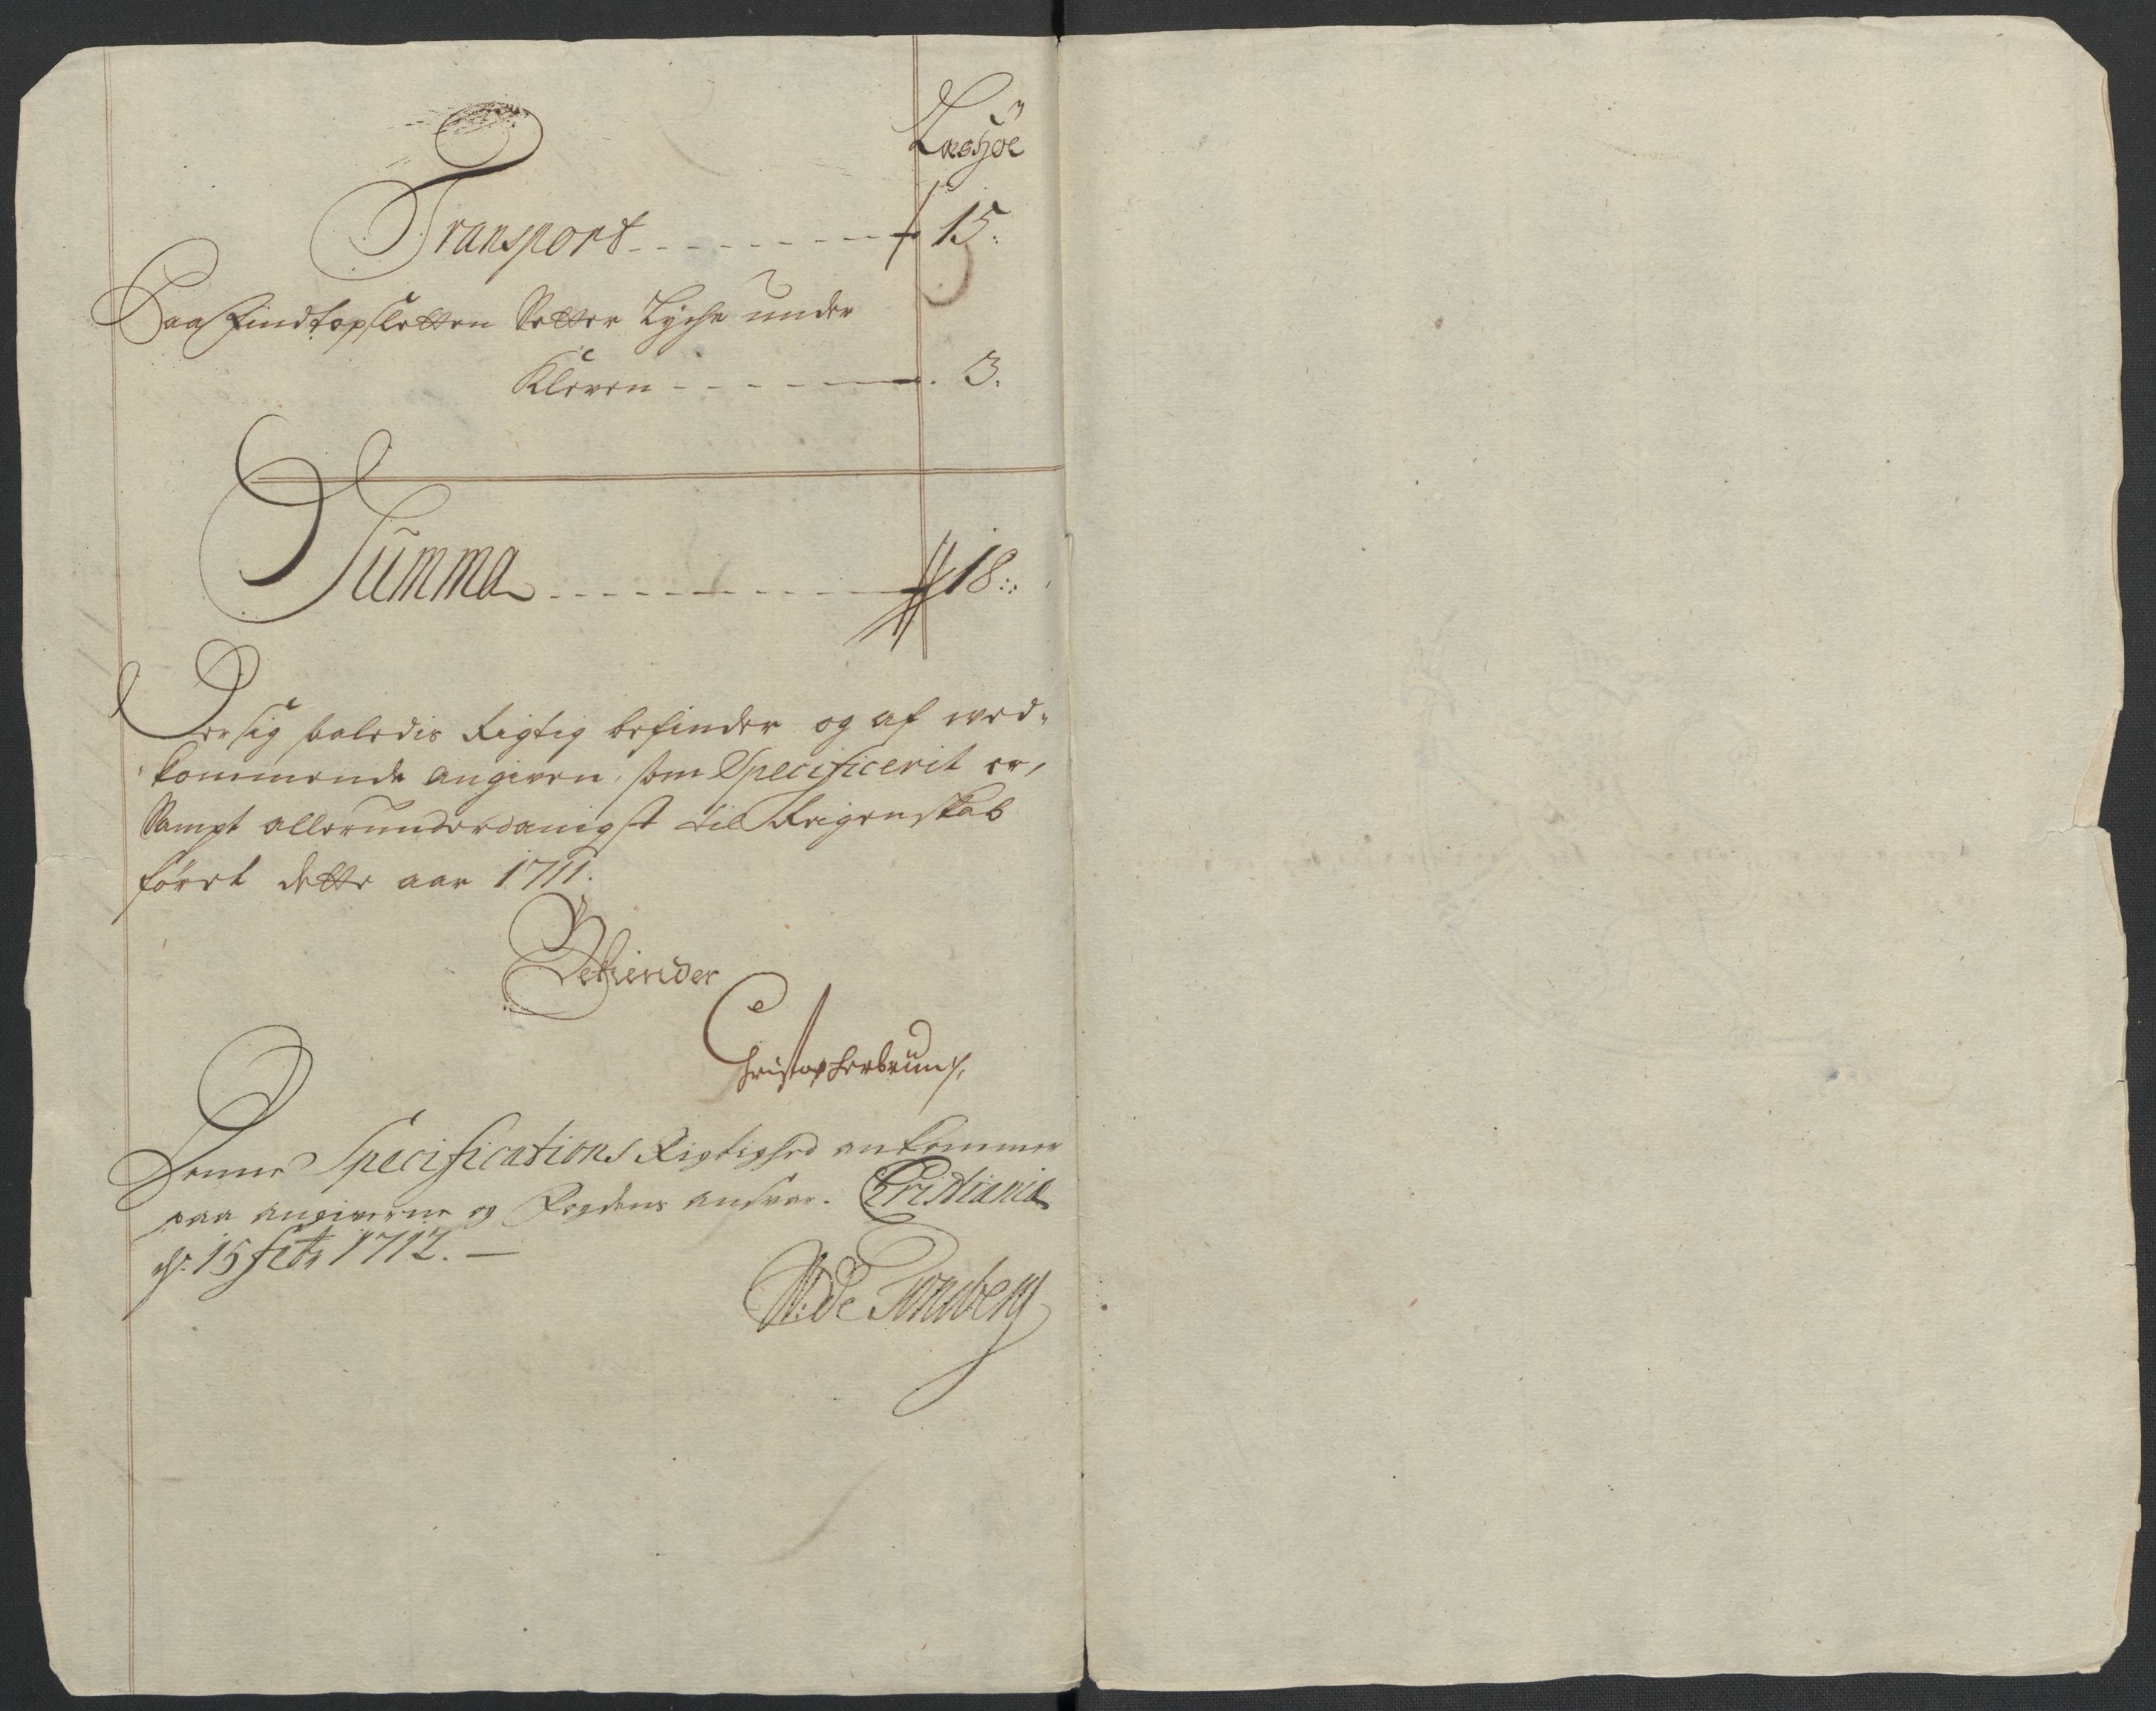 Læs höe
Transport - - - - - - - - 15:
Paa Findtopsletten Setter Lyche under
Kleven - - - - - - . 3.
Summa - - - - - - - - - - 18:
Der sig saaledis Rigtig befinder og af ved-
kommende angiven, som Specificerit er,
Sampt allerunderdanigst til Reigenskab
fört dette aar 1711.
Bekiender
Christopher brun
Denne Specifications Rigtighed ankommer
paa angiverne og Fogdens ansvar. Cristiania
dn: 15 febr 1712. —
W: de Tonsberg